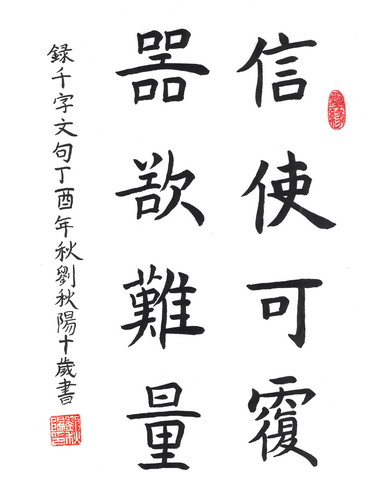 信使可覆
器欲難量
録千字文句丁酉年秋劉秋陽十歲書
劉秋陽印